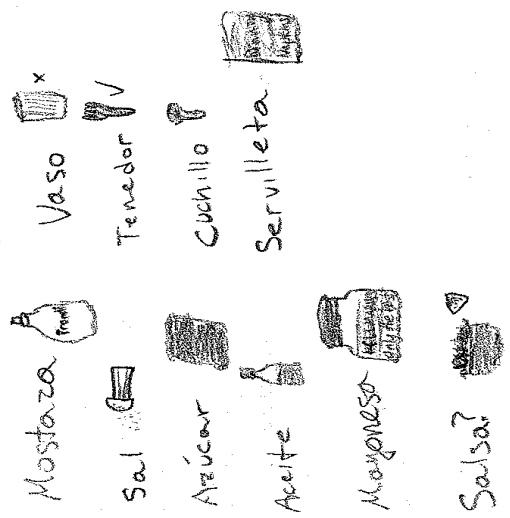 Mostaza
Sal
Azúcar
Aceite
Mayonesa
Salsa?
Vaso x
Tenedor V
Cuchillo
Servilleta